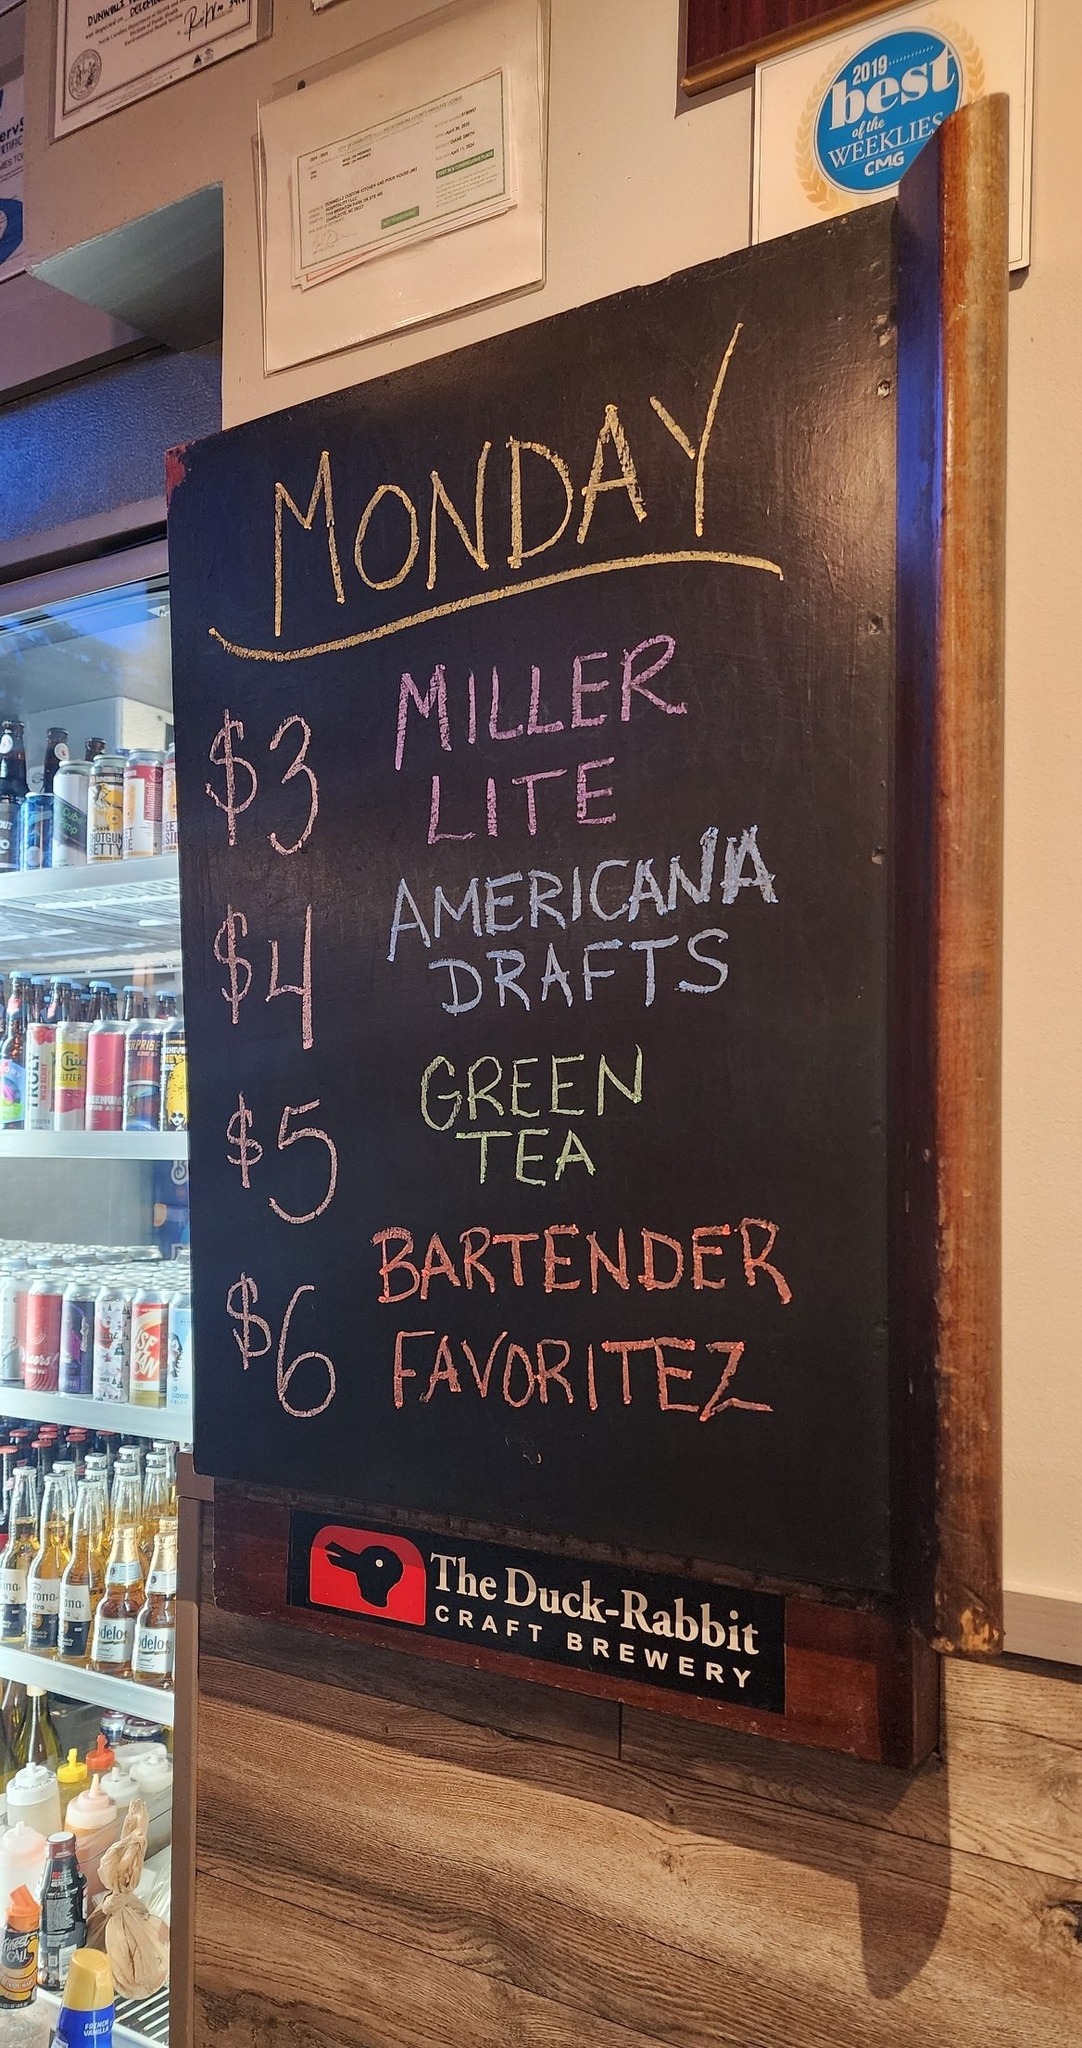 2019
best
of the
WEEKLIES
CMG
MONDAY
$3 MILLER
LITE
$4 AMERICANA
DRAFTS
$5 GREEN
TEA
$6 BARTENDER
FAVORITEZ
The Duck-Rabbit
CRAFT BREWERY
TRULY
FRENCH
VANILLA